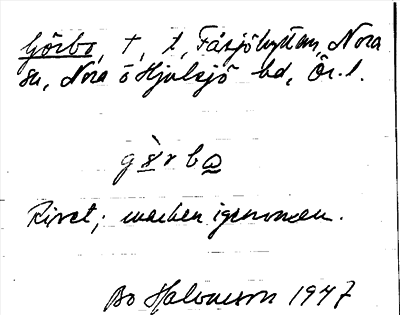 Görbo, †, t, Fåsjöhyttan, Nora
sn, Nora o Hjulsjö bd, Ör. l.
Rivet; marken igenvuxen.
Bo Halvarson 1947